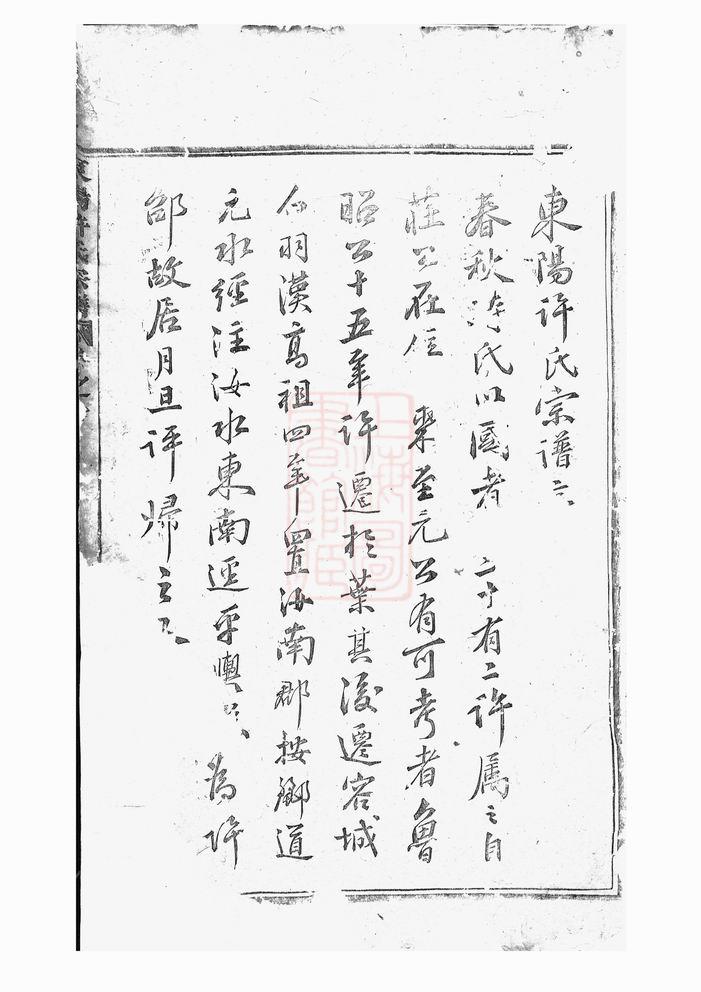 東陽許氏宗譜
春秋許氏以國者 有二許属之自
莊公在位 至元公有可考者魯
昭公十五年許遷於葉其後遷容城
羽漢高祖四年置汝南郡按酈道
元水經注汝水東南逕平輿 為許
邵故居月旦評歸之
上海圖書館藏